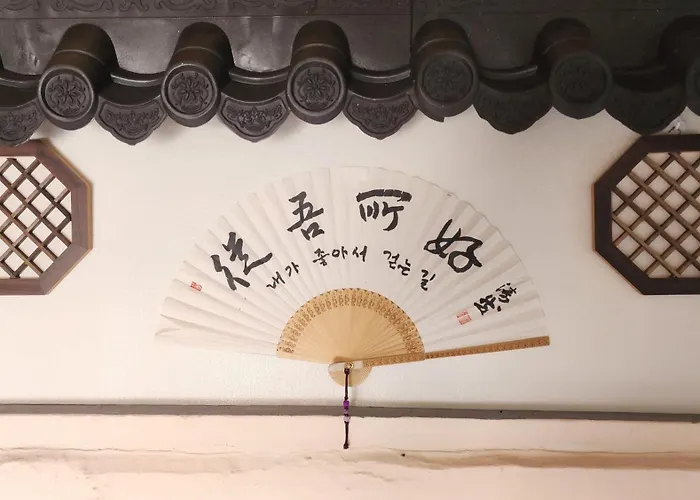 從吾所好
내가 좋아서 걷는 길